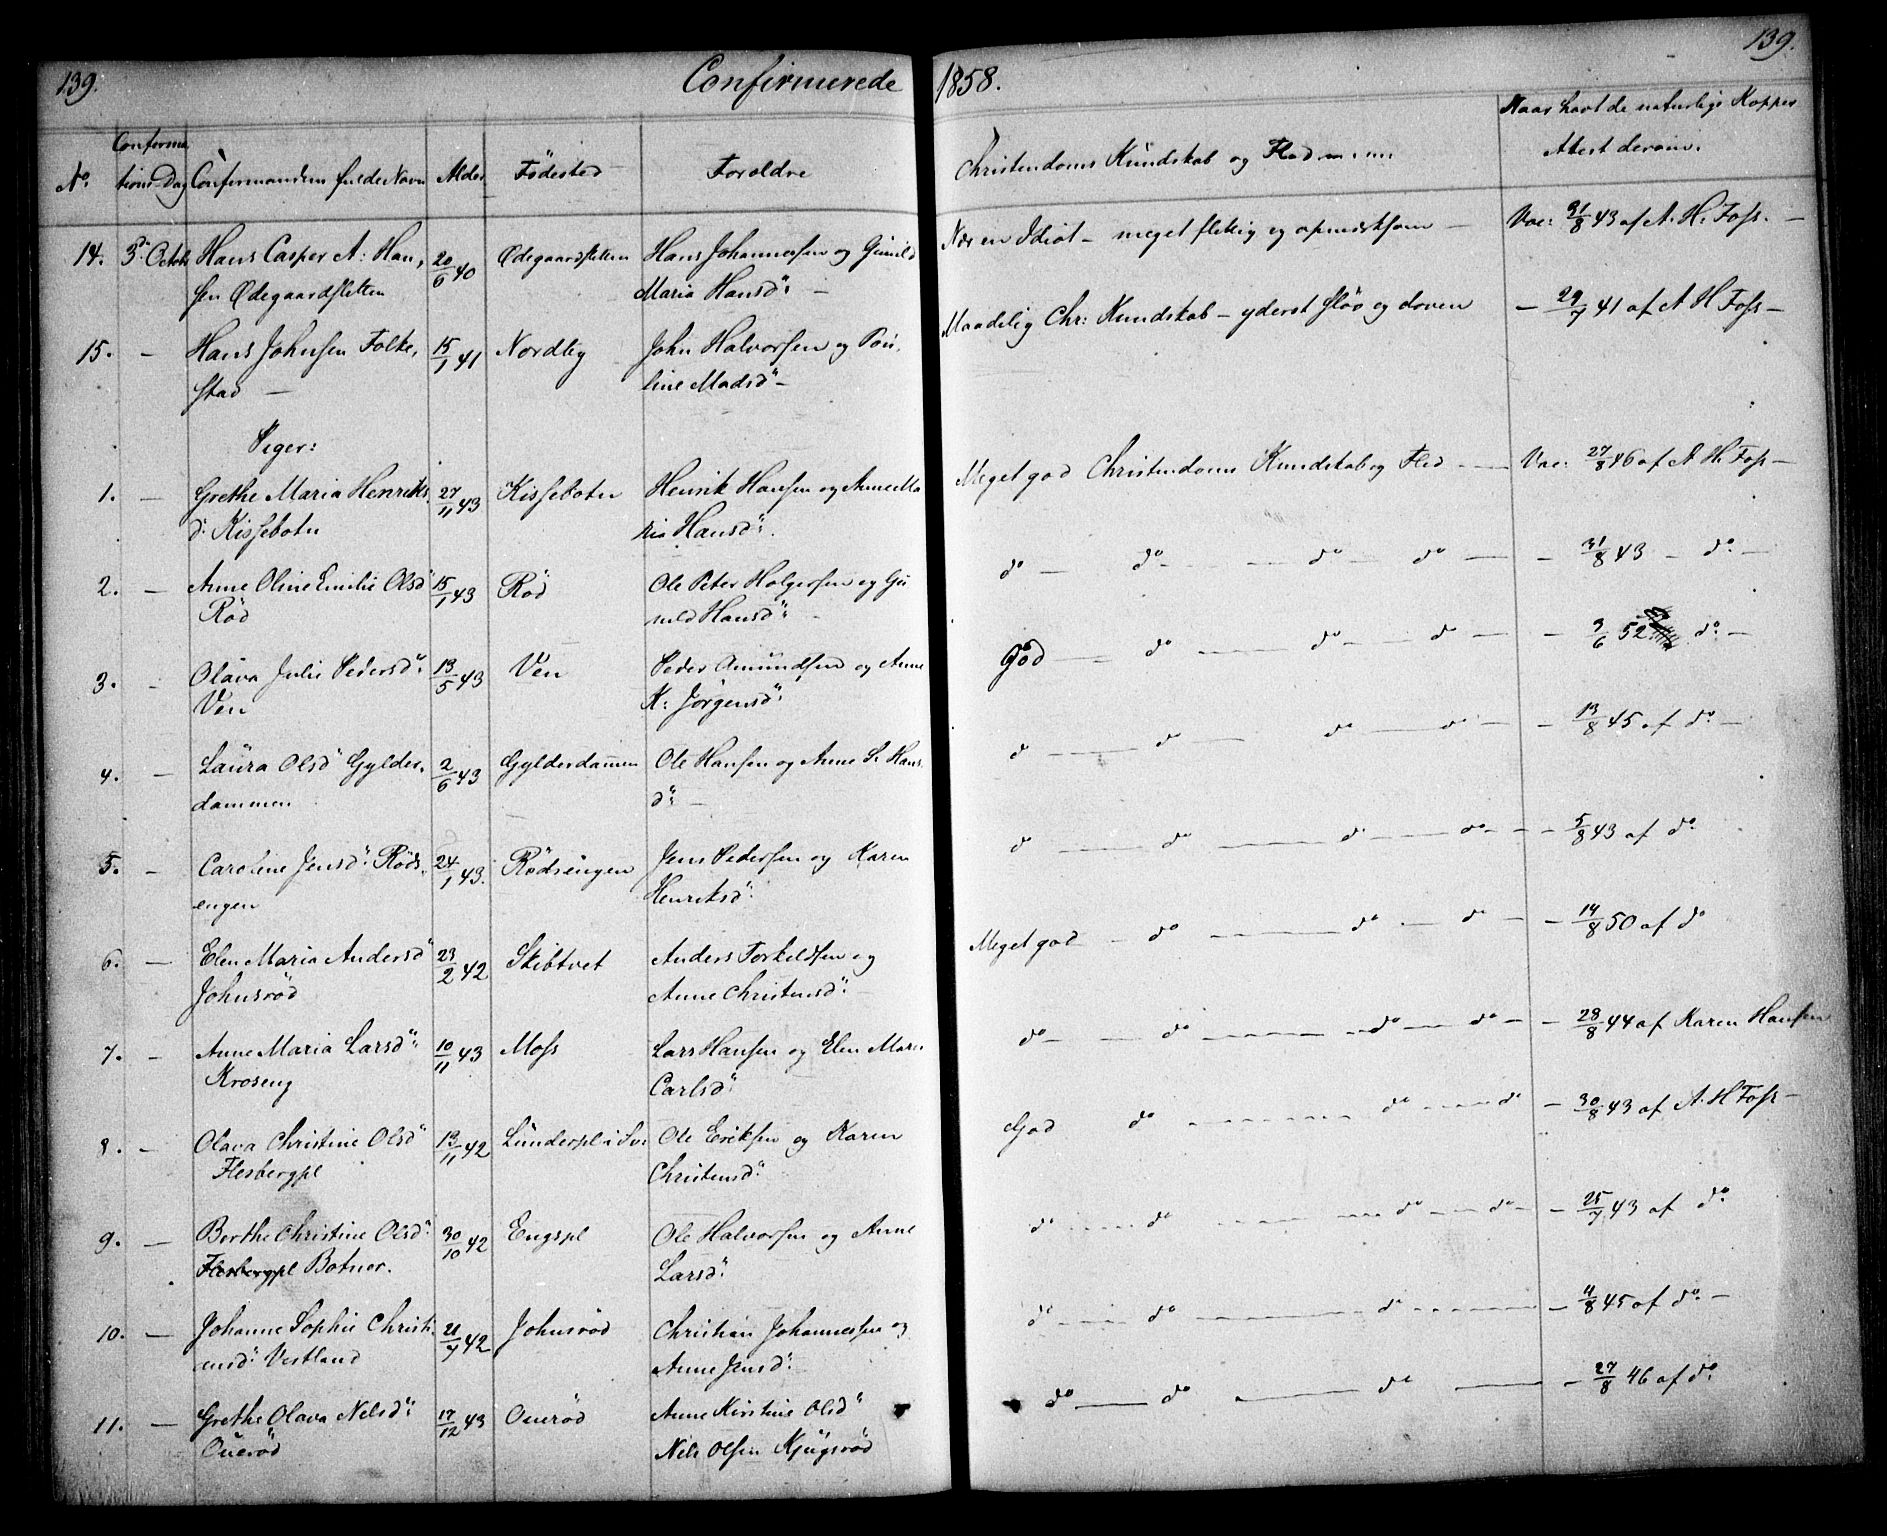 139. Confirmerede 1858. 139.
No. Confirmations Dag Confirmandens fulde Navn Alder Fødested Foroldre Christendoms Kundskab og Flid m. m. Naar havt de naturlige Kopper
Attest derom.
14. 3. Octob Hans Casper A: Han, 20/6 40 Ødegaardsletten Hans Johannessen og Gunild Nær en Idiot – meget flittig og opmærksom – Vac: 31/8 43 af A. H. Foss. –
sen Ødegaardsletten Maria Hansd: –
15. – Hans Johnsen Folke, 15/1 41 Nordby John Halvorsen og Pou, Maadelig Chr: Kundskab – yderst sløv og doven – 29/7 41 af A H Foss –
stad – line Madsd: –
Piger:
1. – Grethe Maria Henriks 27/11 43 Kissebotn Henrik Hansen og Anne Ma Meget god Christendoms Kundskab og Flid – Vac: 27/8 46 af A H. Foss –
d: Kissebotn ria Hansd:
2. – Anne Oline Emilie Olsd 15/1 43 Rød Ole Peter Holgersen og Gu do – do – do – do – – 31/8 43 – do. –
Rød nild Hansd: –
3. – Olava Julie Pedersd: 13/5 43 Ven Peder Amundsen og Anne God – do – do – do – – 3/6 52 do. –
Ven K: Jörgensd:
4. – Laura Olsd Gylder, 2/6 43 Gylderdammen Ole Hansen og Anne S. Hans do – do – do – do – – 13/8 45 af do –
dammen d: –
5. – Caroline Jensd: Röds, 24/1 43. Rødsengen Jens Pedersen og Karen do – do – do – do – – 5/8 43 af do
engen Henriksd:
6. – Elen Maria Andersd 23/2 42 Skibtvet Anders Torkeldsen og Meget god – do – do – do – – 14/8 50 af do
Johnsrød Anne Christensd:
7. – Anne Maria Larsd: 10/11 43 Moss Lars Hansen og Elen Mari do – do – do – do – – 28/8 44 af Karen Hansen
Kroseng Carlsd:
8. – Olava Christine Olsd 13/11 42 Lunderpl i Ole Eriksen og Karen God do – do – do – 30/8 43 af A. H Foss –
Flesbergpl Christensd:
9. – Berthe Christine Olsd: 30/10 42 Engspl Ole Halvorsen og Anne do – do – do – do – – 25/7 43 af do
Flesbergpl Botner. Larsd:
10. – Johanne Sophie Christi 21/7 42 Johnsrød Christian Johannessen og do – do – do – – 11/8 45 af do –
ansd: Vestland Anne Jensd:
11. – Grethe Olava Nelsd: 17/12 43 Ouerød Anne Kirstine Olsd do – do – do – – 27/8 46 af do
Ouerød Nils Olsen